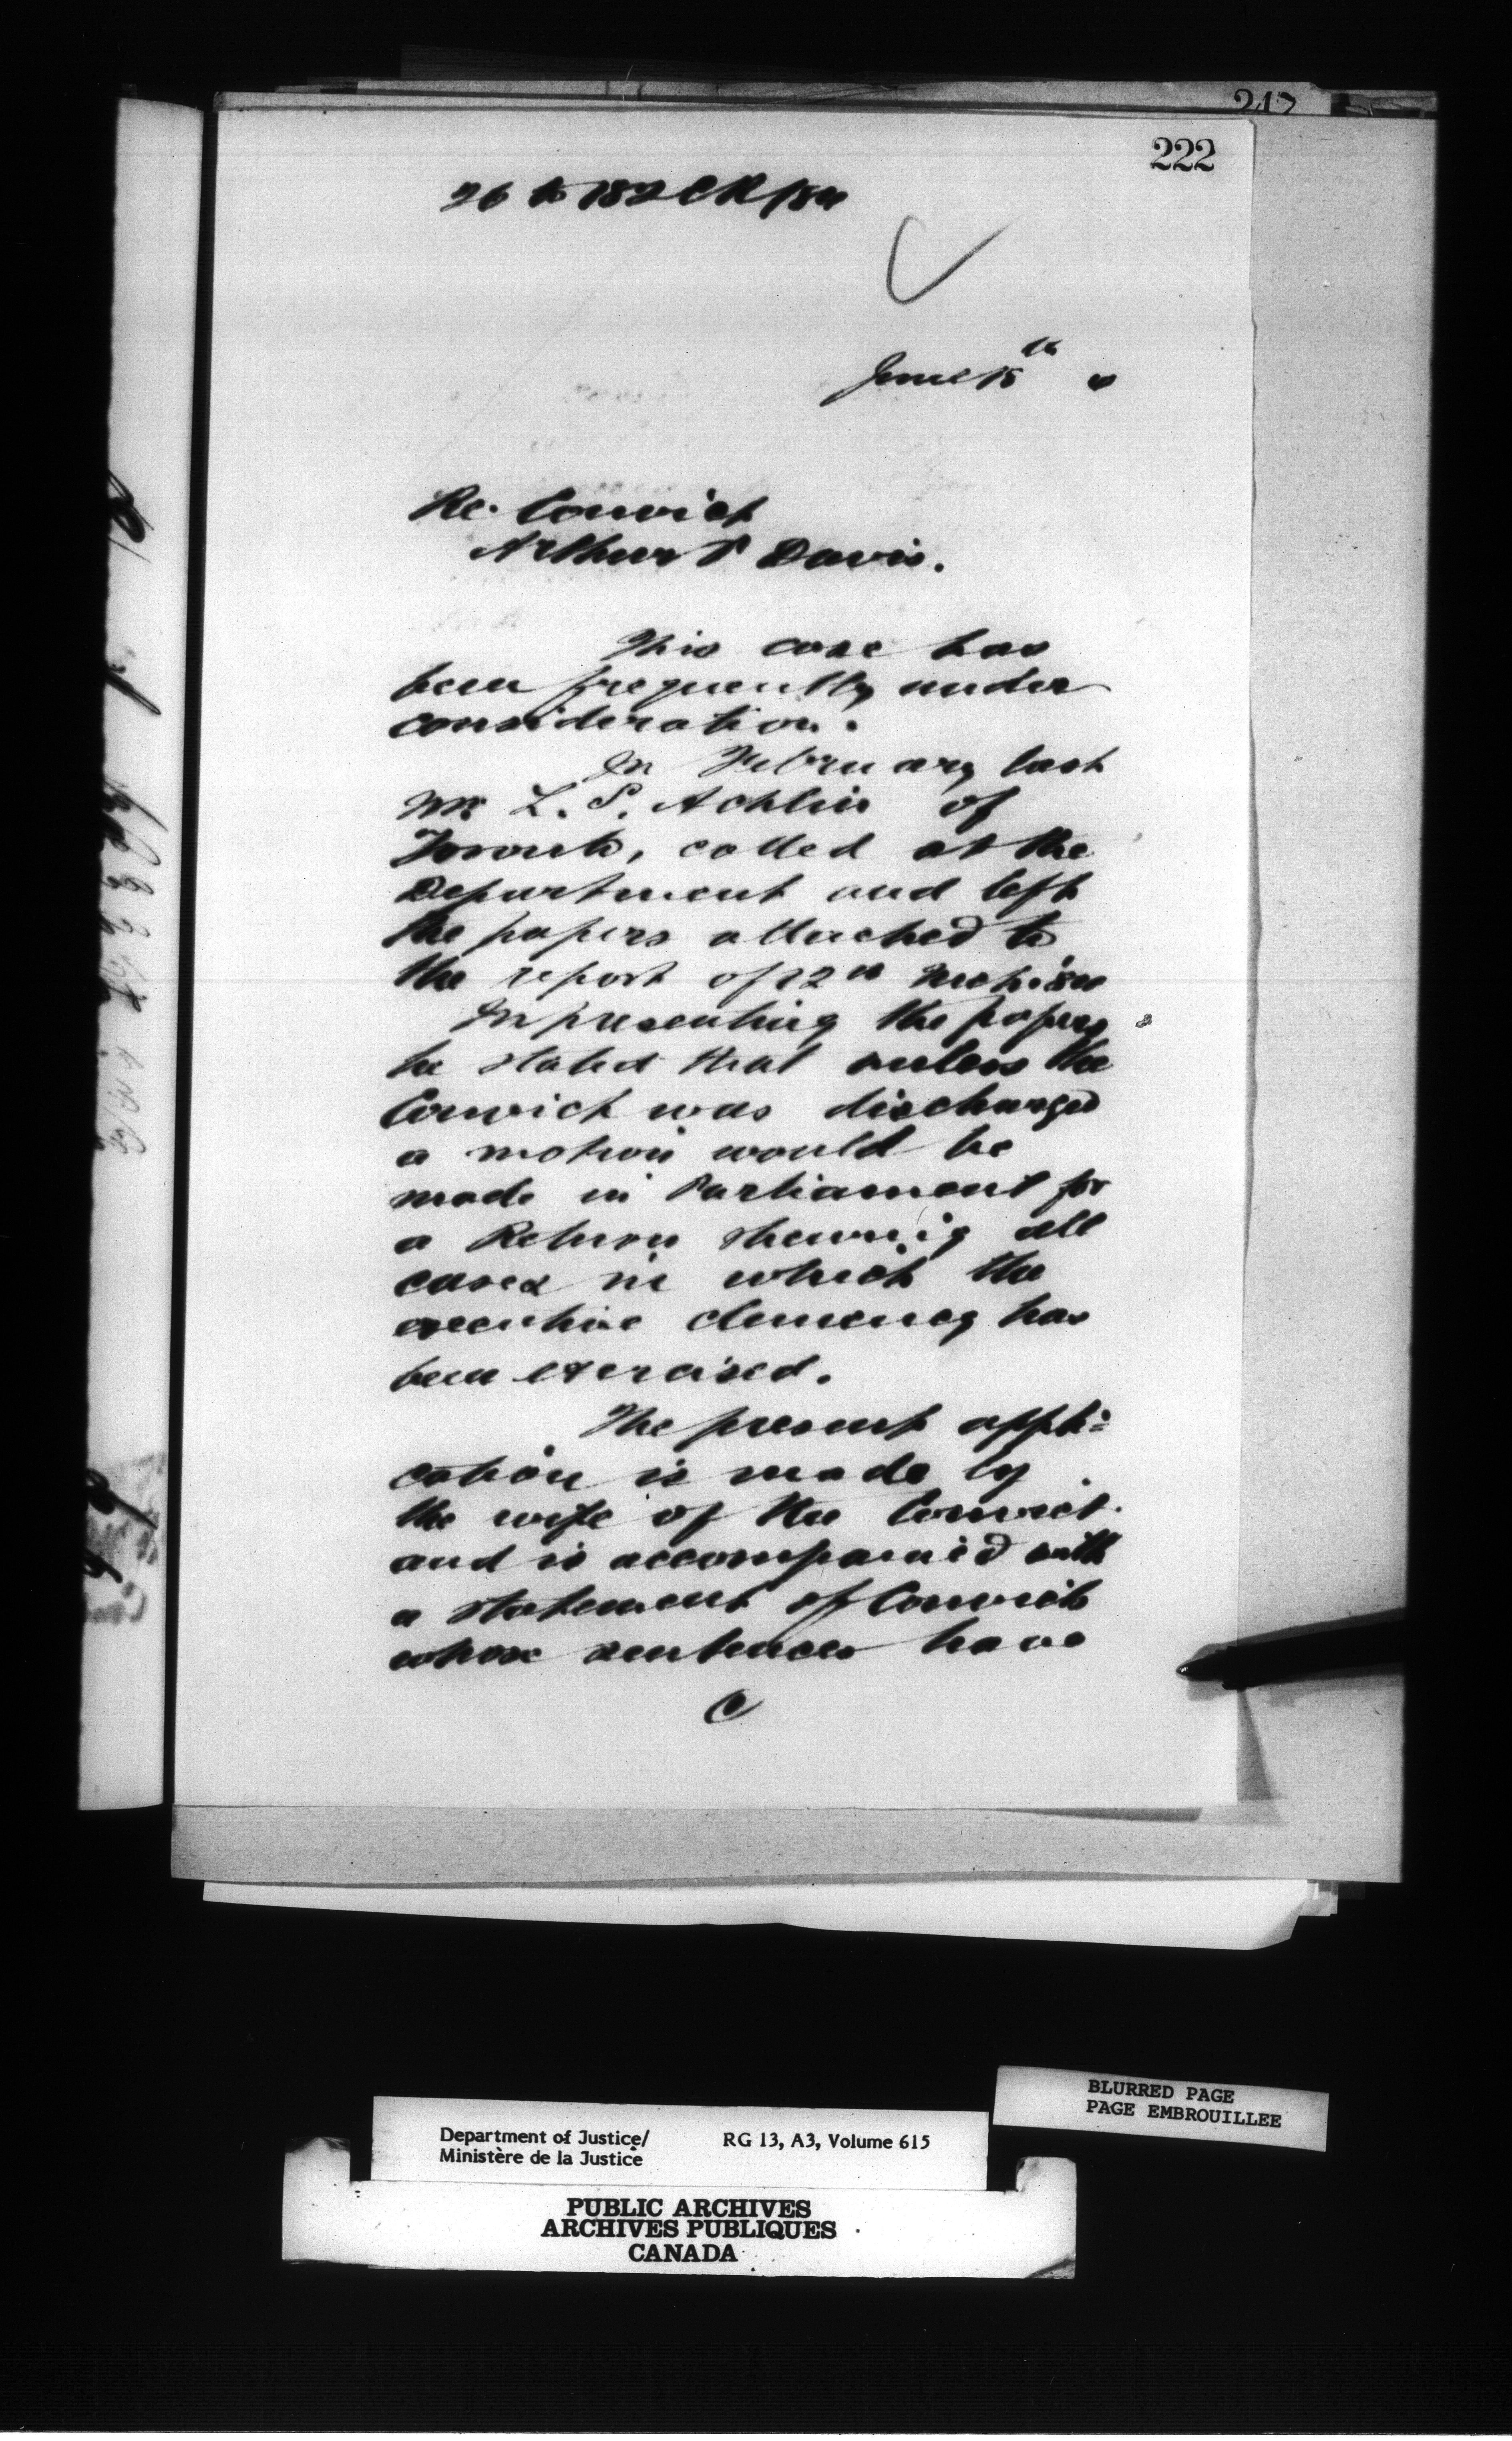 222
June 18th
Re. Convict
Arthur P Davis.
This case has
been frequently under
consideration.
In February last
Mr L. S. Achlin of
Toronto, called at the
Department and left
the papers attached to
the report of 12th
In presenting the papers
he stated that unless the
Convict was discharged
a motion would be
made in Parliament for
a Return shewing all
cases in which the
executive clemency has
been exercised.
The present appli=
cation is made by
the wife of the Convict
and is accompanied with
a statement of Convicts
whose sentences have
BLURRED PAGE
PAGE EMBROUILLEE
Department of Justice/
Ministère de la Justice
RG 13, A3, Volume 615
PUBLIC ARCHIVES
ARCHIVES PUBLIQUES
CANADA